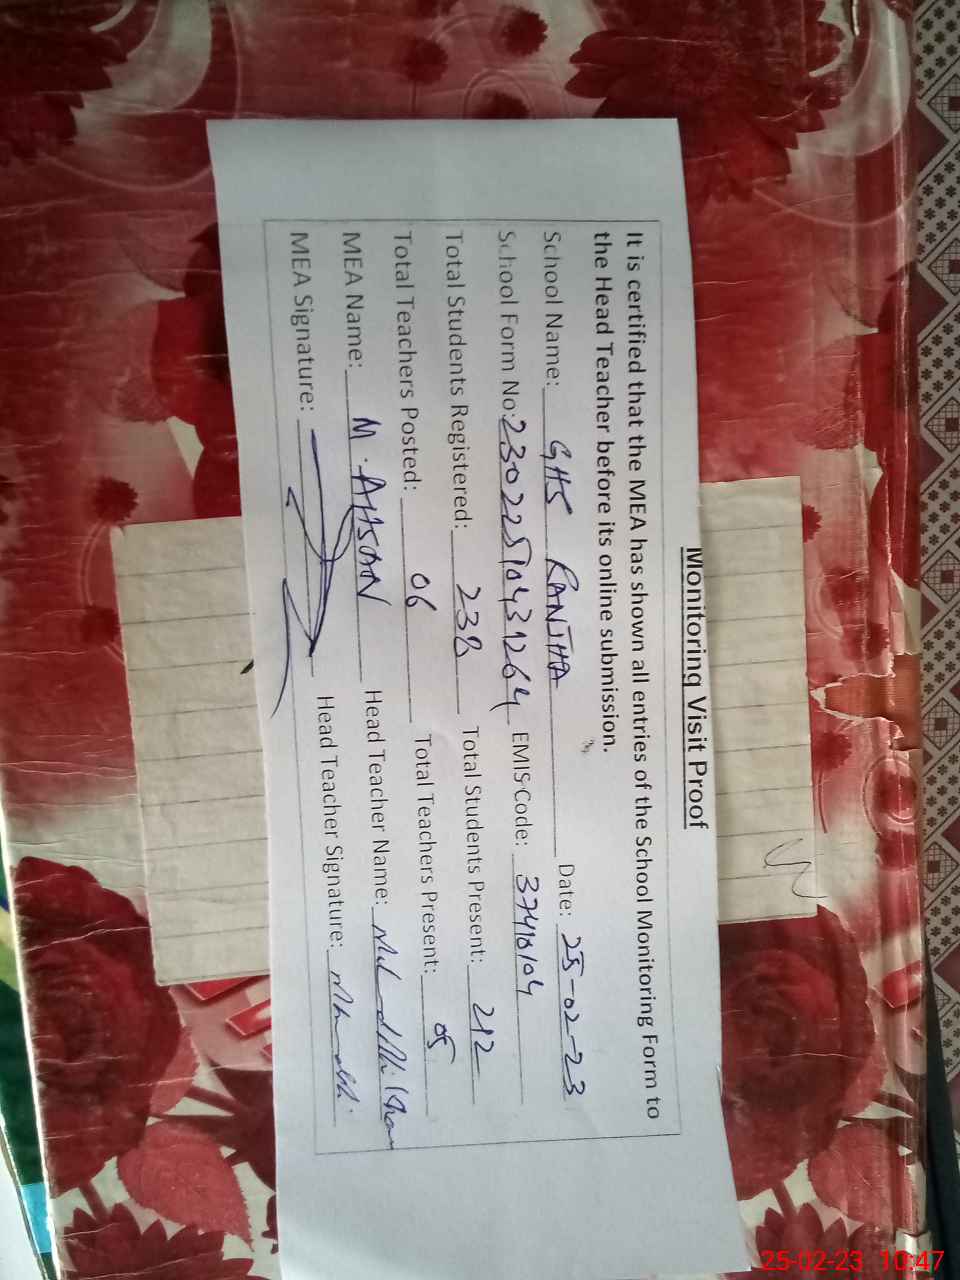 Monitoring Visit Proof
It is certified that the MEA has shown all entries of the School Monitoring Form to
the Head Teacher before its online submission.
School Name: GHS RANJHA Date: 25-02-23
School Form No: 230225 EMIS Code: 37410104
Total Students Registered: 238 Total Students Present: 212
Total Teachers Posted: 06 Total Teachers Present: 05
MEA Name: M. AHSAN Head Teacher Name: Khan
MEA Signature: Head Teacher Signature:
25-02-23 10:47